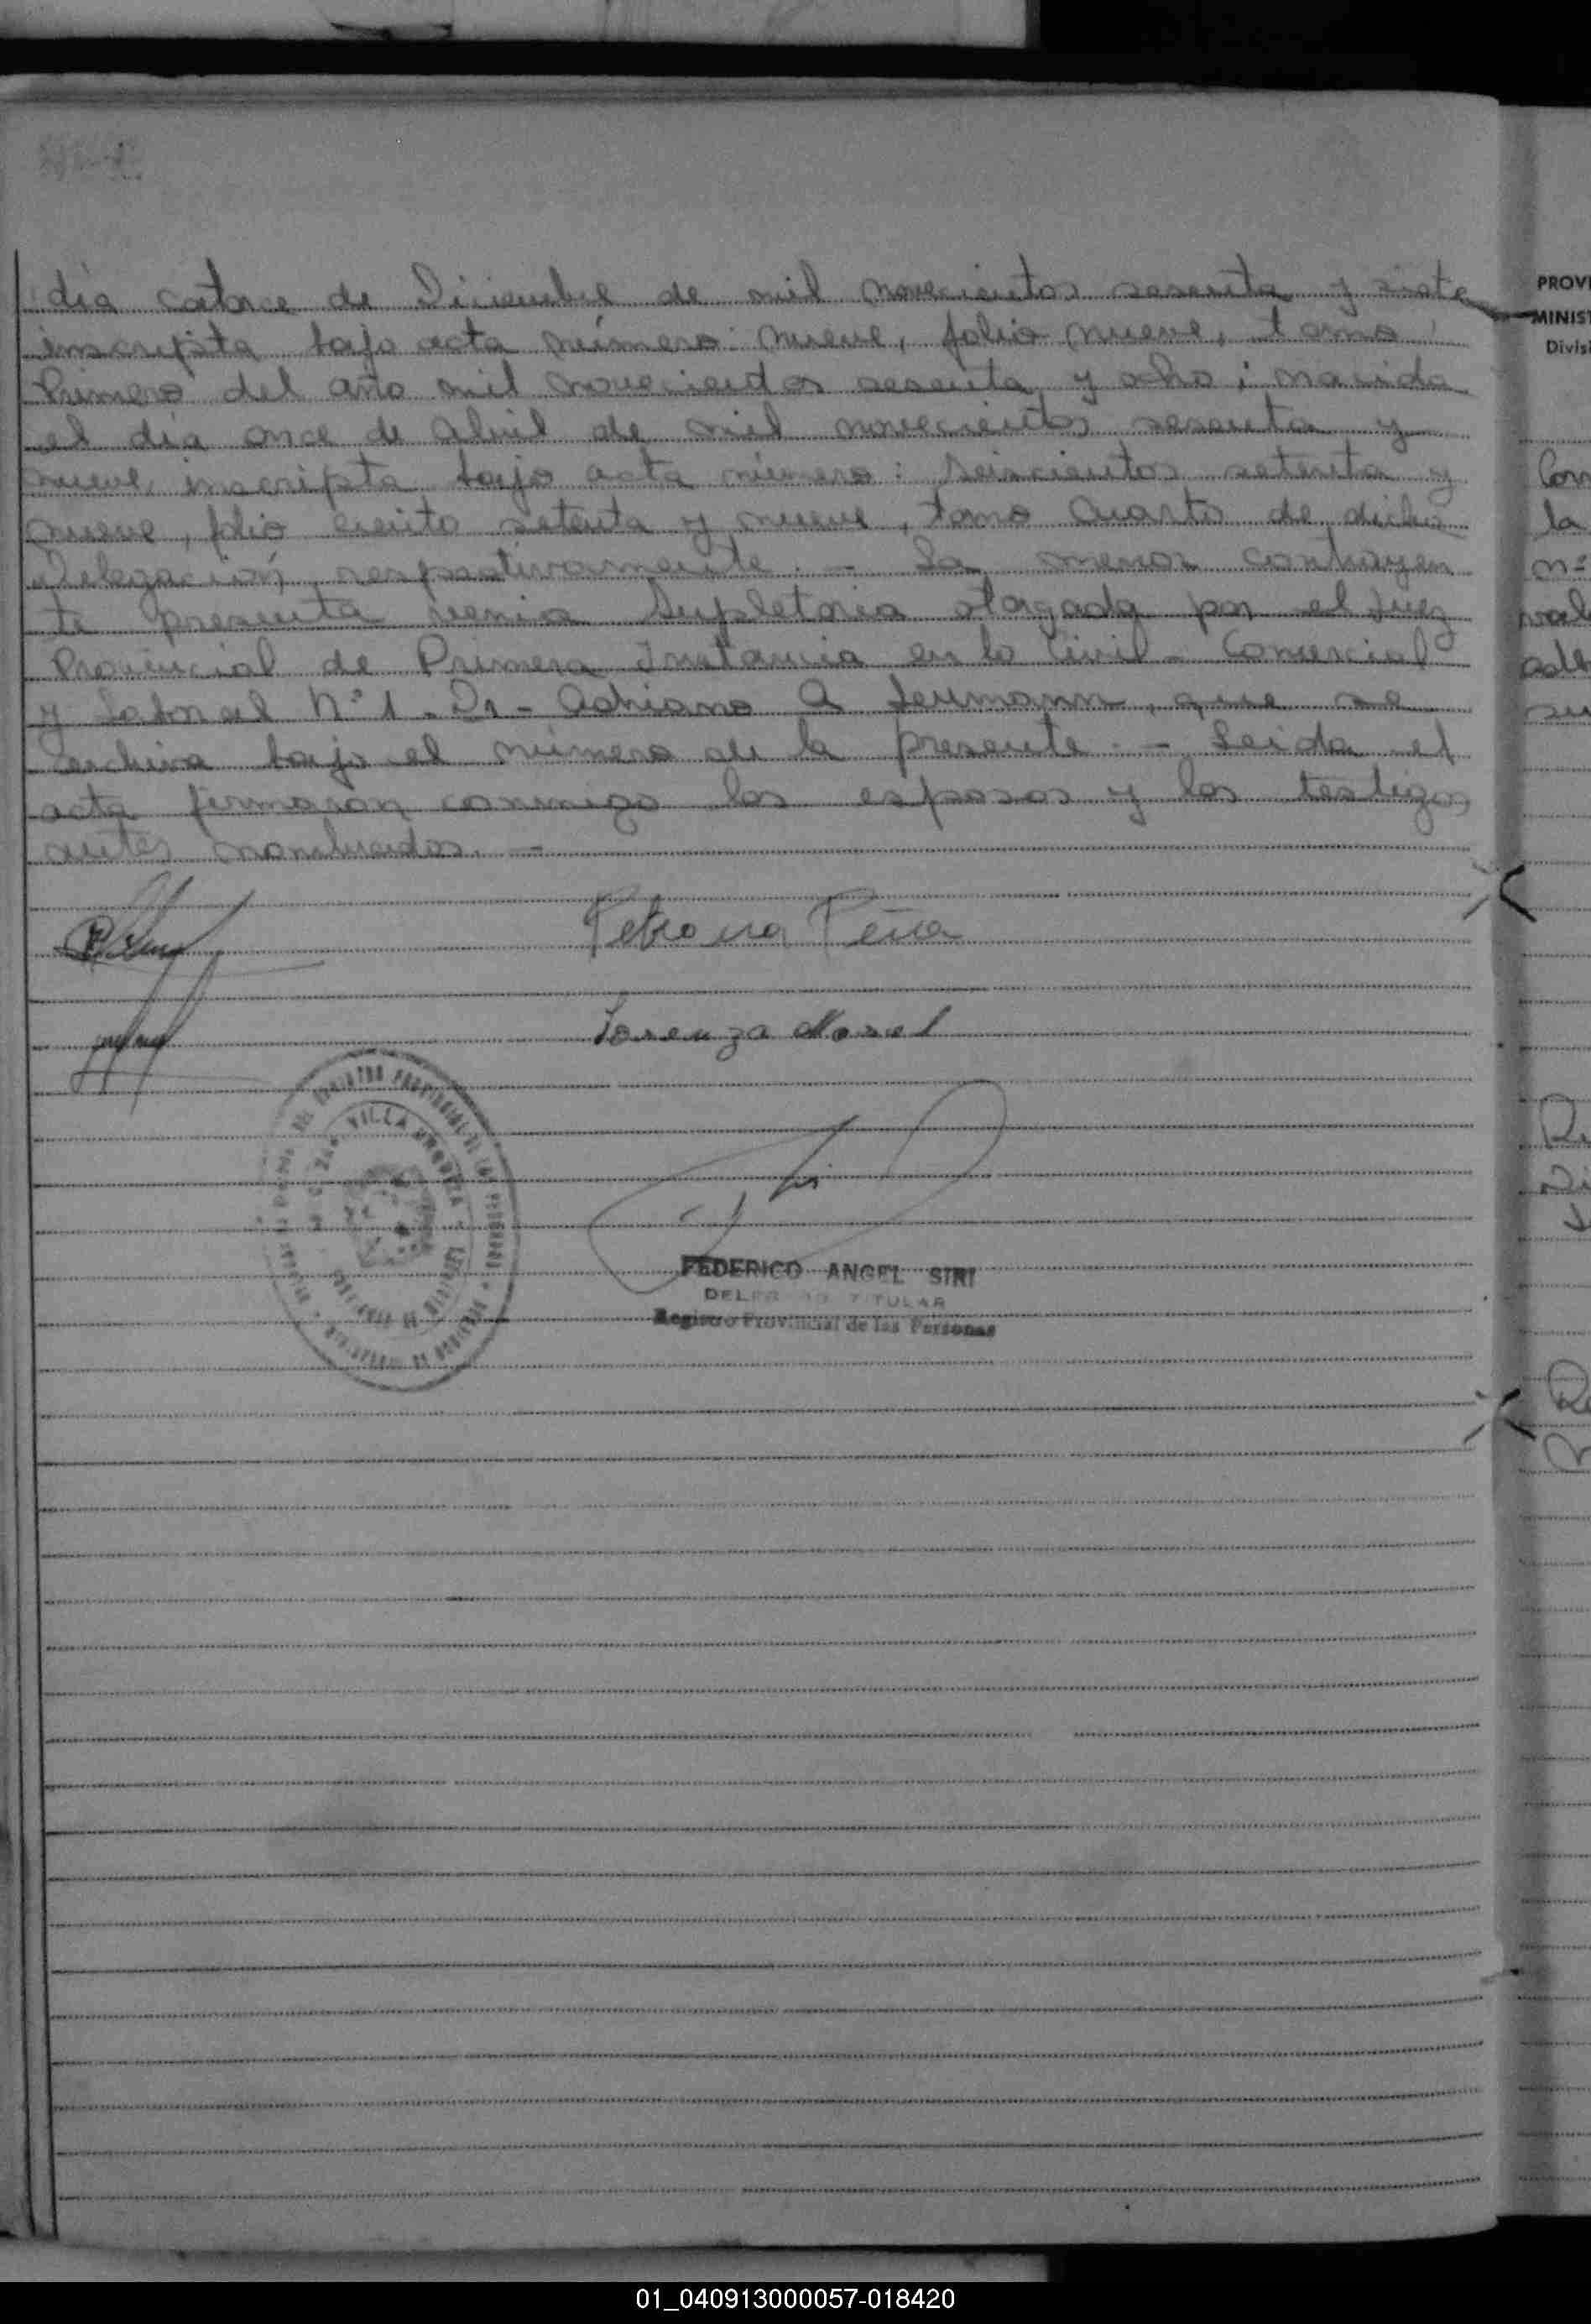 día catorce de Diciembre de mil novecientos sesenta y siete
inscripta bajo acta número: nueve, folio nueve, tomo
Primero del año mil novecientos sesenta y ocho; nacida
el día once de abril de mil novecientos sesenta y
nueve, inscripta bajo acta número: seiscientos setenta y
nueve, folio ciento setenta y nueve, tomo Cuarto de dicha
Delegación, respectivamente. - La menor contrayen
te presenta venia Supletoria otorgada por el Juez
Provincial de Primera Instancia en lo Civil - Comercial
y Laboral N° 1. Dr - Adriano A. , que se
archiva bajo el número de la presente. - Leida el
acta firmaron conmigo los esposos y los testigos
antes nombrados. -
Petrona Peña
Lorenza
REGISTRO PROVINCIAL DE LAS PERSONAS
VILLA
FEDERICO ANGEL SIRI
DELEGADO TITULAR
Registro Provincial de las Personas
PROVI
MINIST
Divisi
la
01_040913000057-018420